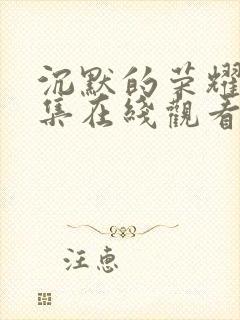 沉默的荣耀
集在线觀看
汪惠